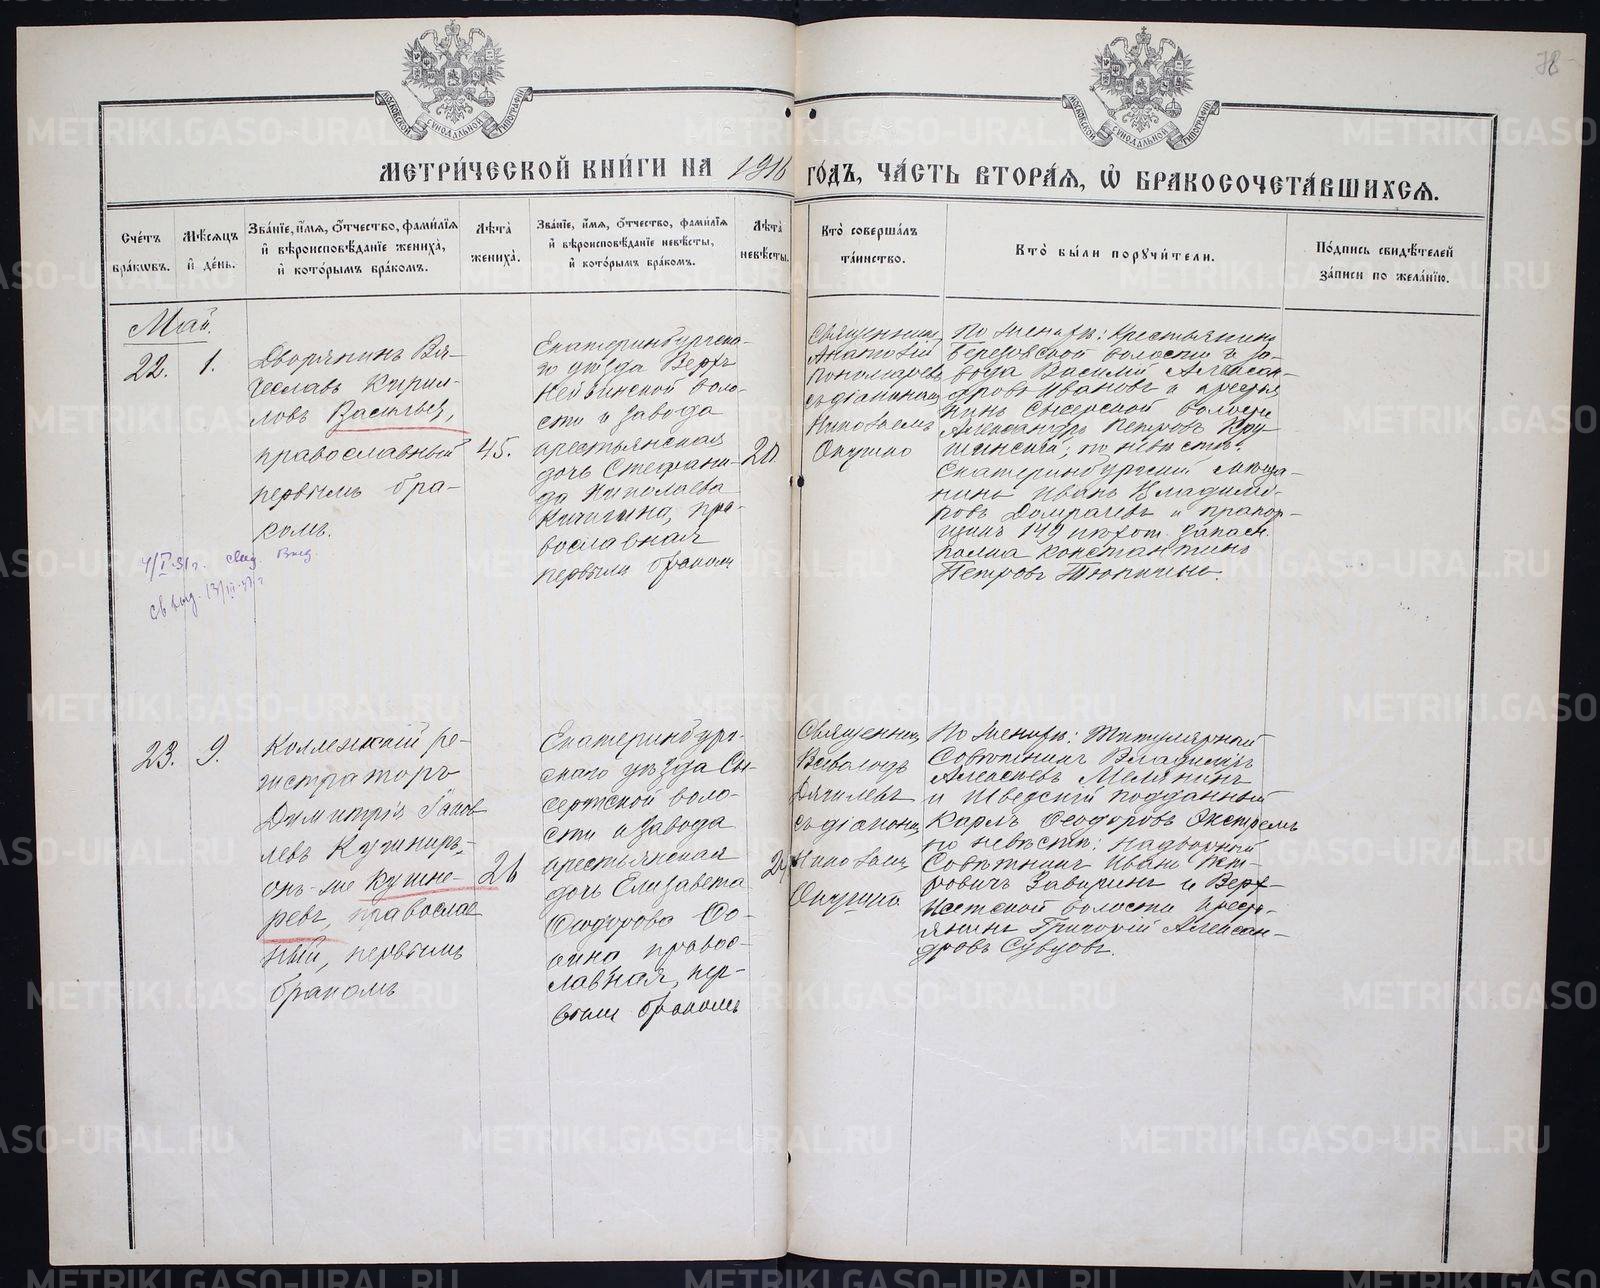 78
МОСКОВСКОЙ СѴНОДАЛЬНОЙ ТИПОГРАФІИ
МОСКОВСКОЙ СѴНОДАЛЬНОЙ ТИПОГРАФІИ
МЕТРИ́ЧЕСКОЙ КНИ́ГИ НА 1916 ГО́ДЪ, ЧА́СТЬ ВТОРА́Я, Ѡ҆ БРАКОСОЧЕТА́ВШИХСЯ.
Сче́тъ
бра́кѡвъ.
Мѣ́сяцъ
и҆ де́нь.
Зва́нїе, и҆́мя, ѻ҆́тчество, фами́лїя
и҆ вѣроисповѣ́данїе жениха̀,
и҆ кото́рымъ бра́комъ.
Лѣ́та
жениха̀.
Зва́нїе, и҆́мя, ѻ҆́тчество, фами́лїя
и҆ вѣроисповѣ́данїе невѣ́сты,
и҆ кото́рымъ бра́комъ.
Лѣ́та
невѣ́сты.
Кто̀ соверша́лъ
та́инство.
Кто̀ бы́ли порꙋчи́тели.
По́дпись свидѣ́телей
за́писи по жела́нїю.
Май.
22.
1.
Дворянинъ Вя-
чеславъ Кирил-
ловъ Васильев,
православный
первымъ бра-
комъ.
45.
Екатеринбургска-
го уѣзда Верхъ
Нейвинской воло-
сти и завода
крестьянская
дочь Стефани-
да Николаева
Кичигина, пра-
вославная
первымъ бракомъ
20
Священникъ
Анатолій
Пономаревъ
съ діакономъ
Николаемъ
Опушно
По женихѣ: Крестьянинъ
Березовской волости и за-
вода Василій Алексан-
дровъ Ивановъ и крестья
нинъ Сысертской волости
Александръ Петровъ
по невѣстѣ:
Екатеринбургский мѣща-
нинъ Иванъ Владимі-
ровъ Домрачевъ и прапор-
щикъ 149 пѣхот. запасн.
полка Константинъ
Петровъ Тюпичкин.
4/I-31г. свид. Выд
Св выд. 13/III
23.
9.
Коллежскій ре-
гистраторъ
Димитрій
левъ Кушниръ,
онъ-же Кушне-
ревъ, православ
ный, первымъ
бракомъ
26
Екатеринбург-
скаго уѣзда Сы-
сертской воло-
сти и завода
крестьянская
дочь Елизавета
Ѳеодорова Ѳо-
мина правос-
лавная, пер-
вымъ бракомъ
24
Священник
Всеволодъ
Дягилевъ
съ діакономъ
Николаемъ
Опушно
По женихѣ: Титулярный
Совѣтникъ Владиміръ
Алексѣевъ Мелянинъ
и Шведскій подданный
Карлъ Ѳеодоровъ Экстремъ
по невѣстѣ: Надворный
Совѣтникъ Иванъ Пет-
ровичъ Заверинъ и Верх-
Исетской волости крест-
янинъ Григорій Алексан-
дровъ Сувцовъ.
METRIKI.GASO-URAL.RU